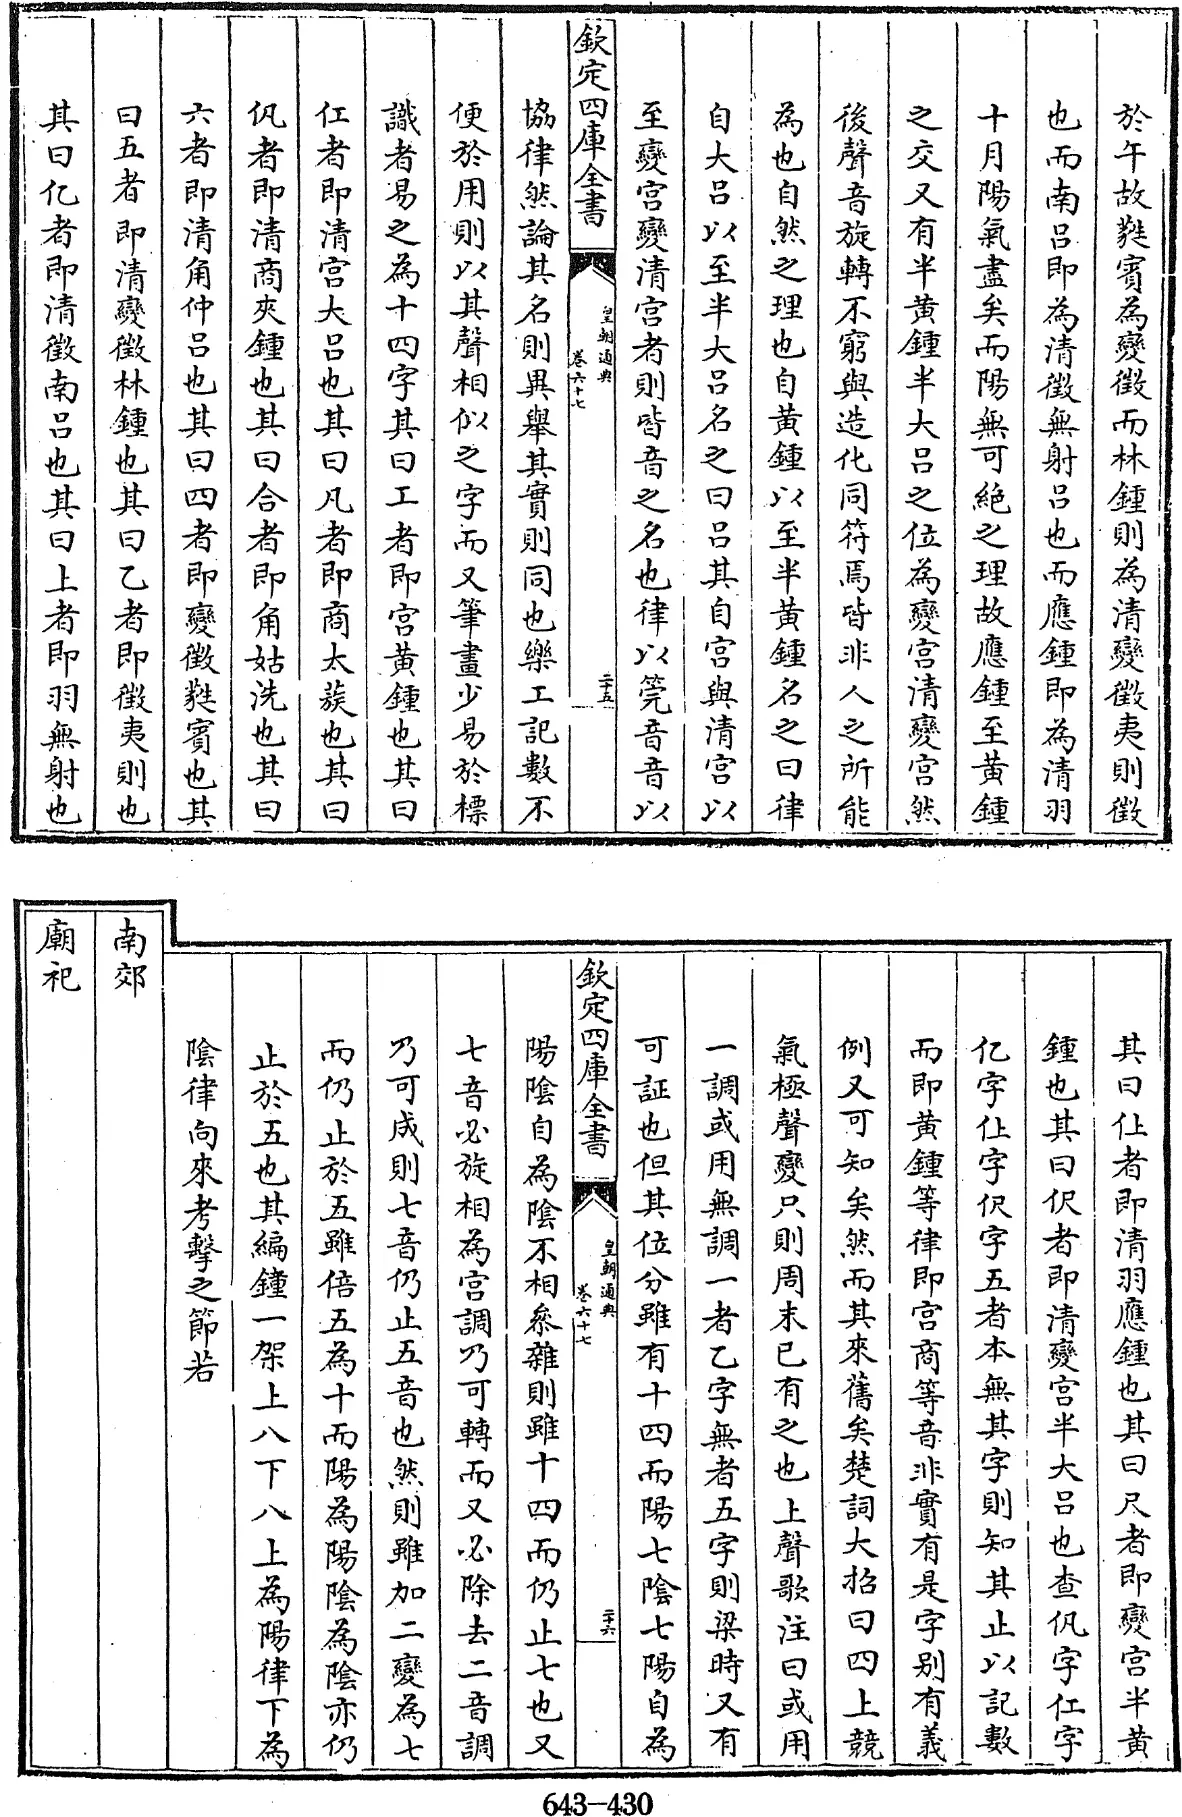 於午故蕤賓為變徵而林鍾則為清變徵夷則徵
也而南呂即為清徵無射呂也而應鍾即為清羽
十月陽氣盡矣而陽無可絶之理故應鍾至黄鍾
之交又有半黄鍾半大呂之位為變宮清變宮然
後聲音旋轉不窮與造化同符焉皆非人之所能
為也自然之理也自黄鍾以至半黄鍾名之曰律
自大呂以至半大呂名之曰呂其自宮與清宮以
至變宮變清宮者則皆音之名也律以筦音音以
欽定四庫全書
皇朝通典
卷六十七
二十五
協律然論其名則異舉其實則同也樂工記數不
便於用則以其聲相似之字而又筆畫少易於標
識者易之為十四字其曰工者即宮黄鍾也其曰
仜者即清宮大呂也其曰凡者即商太蔟也其曰
㐺者即清商夾鍾也其曰合者即角姑洗也其曰
六者即清角仲呂也其曰四者即變徵蕤賓也其
曰五者即清變徵林鍾也其曰乙者即徵夷則也
其曰亿者即清徵南呂也其曰上者即羽無射也
其曰仩者即清羽應鍾也其曰尺者即變宮半黄
鍾也其曰伬者即清變宮半大呂也查㐺字仜字
亿字仩字伬字五者本無其字則知其止以記數
而即黄鍾等律即宮商等音非實有是字别有義
例又可知矣然而其來舊矣楚詞大招曰四上競
氣極聲變只則周末已有之也上聲歌注曰或用
一調或用無調一者乙字無者五字則梁時又有
可証也但其位分雖有十四而陽七陰七陽自為
欽定四庫全書
皇朝通典
卷六十七
二十六
陽陰自為陰不相叅雜則雖十四而仍止七也又
七音必旋相為宮調乃可轉而又必除去二音調
乃可成則七音仍止五音也然則雖加二變為七
而仍止於五雖倍五為十而陽為陽陰為陰亦仍
止於五也其編鐘一架上八下八上為陽律下為
陰律向來考擊之節若
南郊
廟祀
643-430